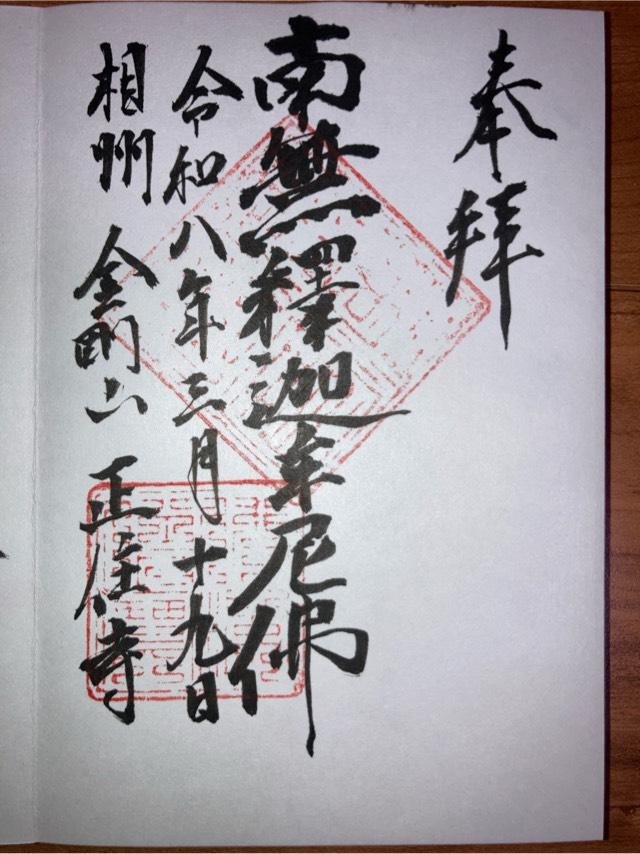 奉拜
南無釋迦牟尼佛
令和八年三月十九日
相州 金剛山 正住寺